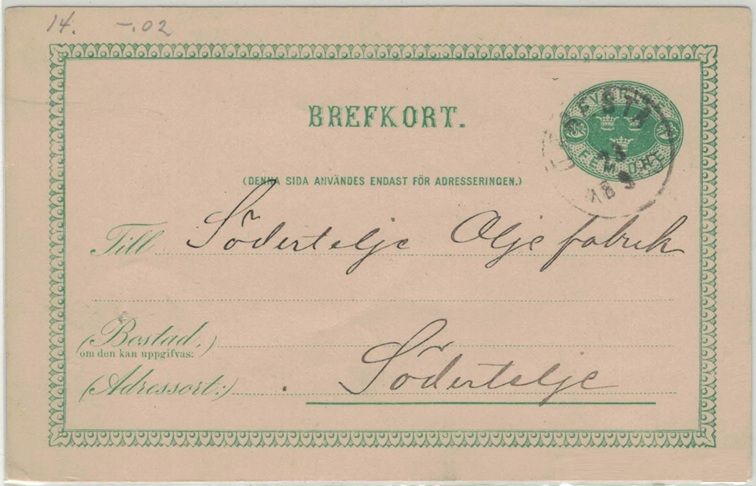 14. -.02
BREFKORT.
SVERIGE
FEM ÖRE
STA
(DENNA SIDA ANVÄNDES ENDAST FÖR ADRESSERINGEN.)
Till Södertelje Oljefabrik
(Bostad.)
om den kan uppgifvas:
(Adressort:) Södertelje